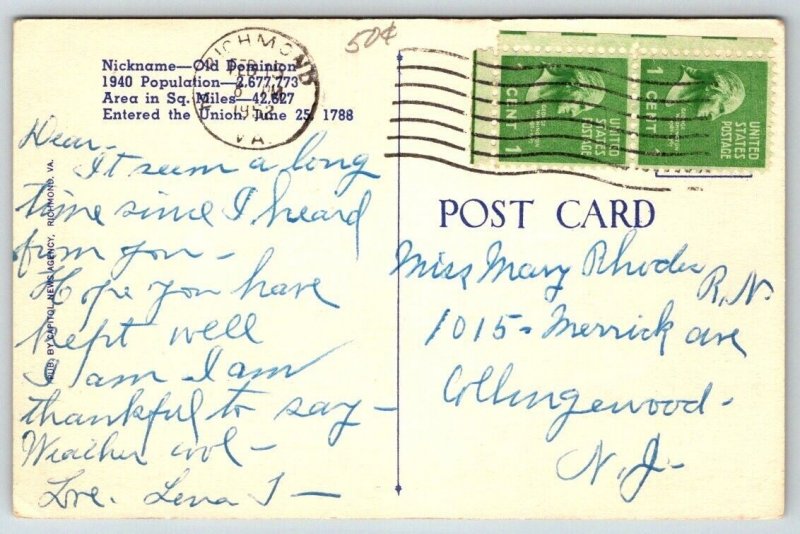 50¢
Nickname—Old Dominion
1940 Population—2,677,773
Area in Sq. Miles—42,627
Entered the Union, June 25, 1788
RICHMOND
FEB
1952
VA.
1 CENT 1
UNITED STATES POSTAGE
1 CENT
UNITED STATES POSTAGE
PUB. BY CAPITOL NEWS AGENCY, RICHMOND, VA.
Dear-
It seem a long
time since I heard
from you-
Hope you have
kept well
I am I am
thankful to say-
Weather cool-
Love. Lena T-
POST CARD
Miss Mary Rhodes R.N.
1015- Merrick ave
Collingswood-
N.J-